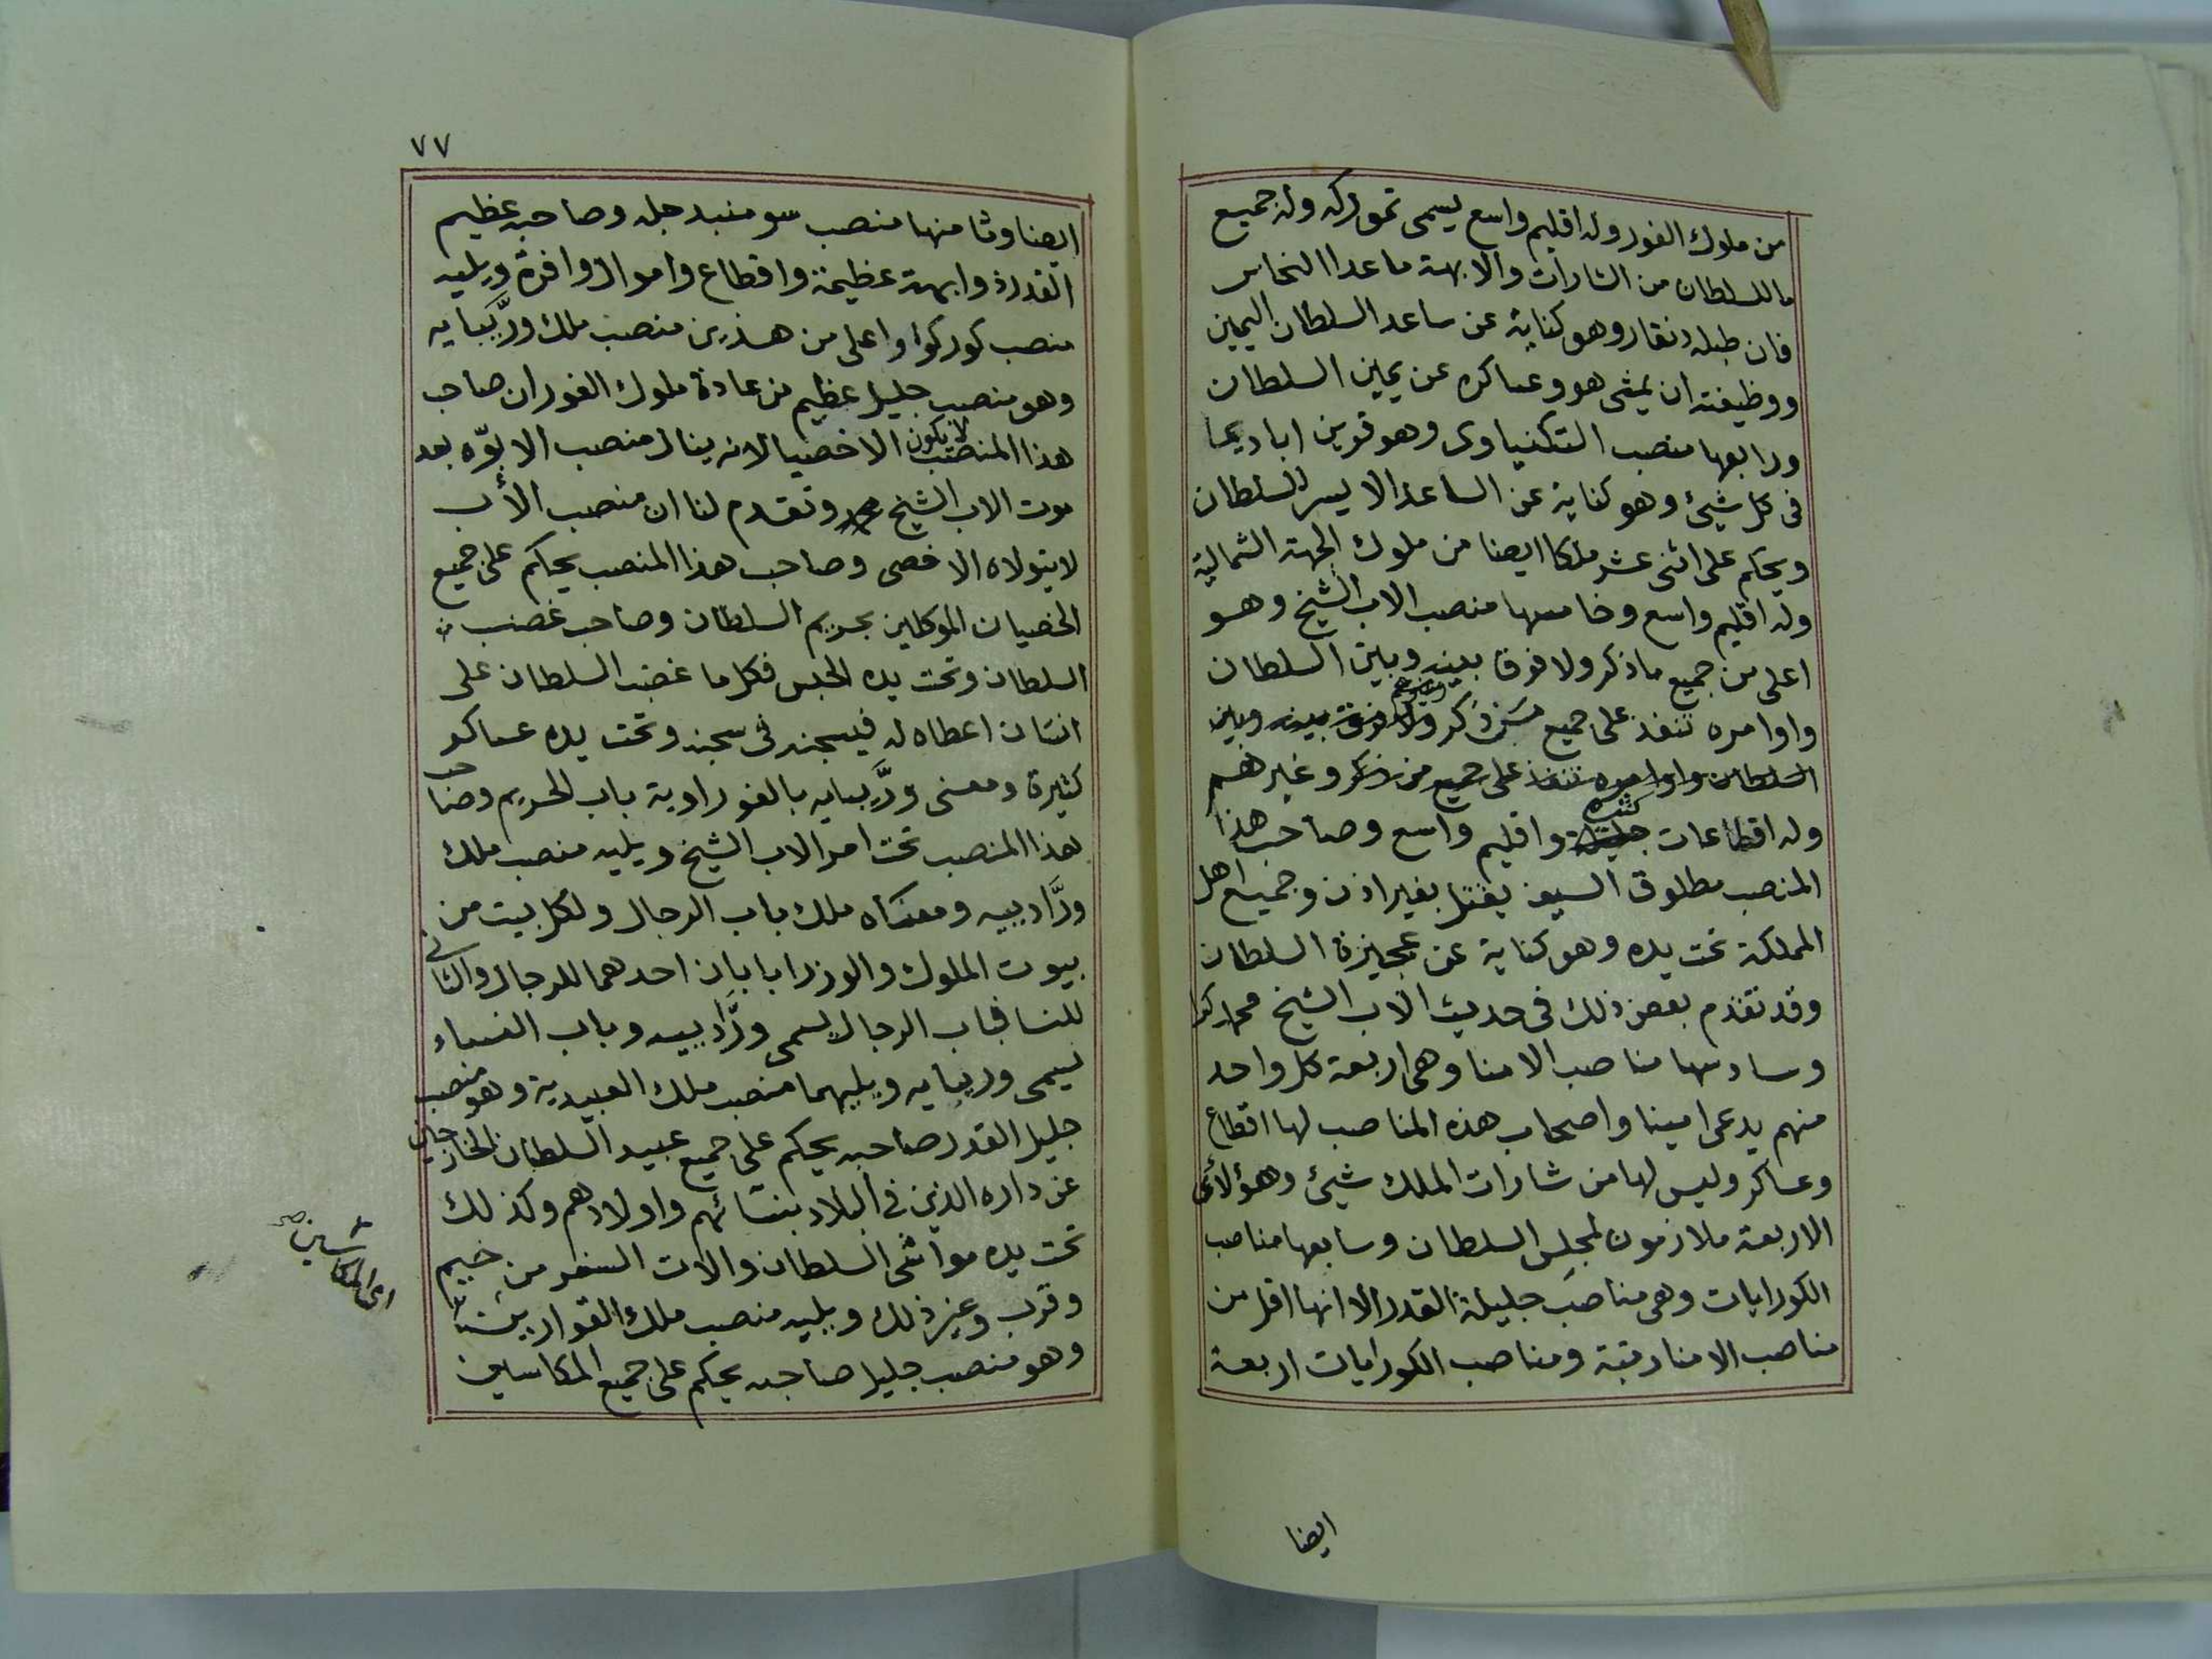 من ملوك الفور وله اقليم واسع يسمى تمورکه وله جميع
ما للسلطان من الشارات والابهة ما عدا النحاس
فان طبله دنقار وهو كناية عن ساعد السلطان اليمين
ووظيفته ان يمشى هو وعساكره عن يمين السلطان
ورابعها منصب التكنياوى وهو قرين ابا ديما
فى كل شيئ وهو كناية عن الساعد الايسر للسلطان
ويحكم على اثنى عشر ملكا ايضا من ملوك الجهة الشمالية
وله اقليم واسع وخامسها منصب الاب الشيخ وهو
اعلى من جميع ما ذكر ولا فوقا بينه وبين السلطان
واوامره تنفذ على جميع من ذكر ولا فوق بينه وبين
السلطان واوامره تنفذ على جميع من ذكر وغيرهم
وله اقطاعات كثيرة واقليم واسع وصاحب هذا
المنصب مطلوق السيف يقتل بغير اذن وجميع اهل
المملكة تحت يده وهو كناية عن عجيزة السلطان
وقد تقدم بعض ذلك فى حديث الاب الشيخ محمد كرا
وسادسها مناصب الامنا وهى اربعة كل واحد
منهم يدعى امينا واصحاب هذه المناصب لها اقطاع
وعساكر وليس لها من شارات الملك شيئ وهؤلائى
الاربعة ملازمون لمجلس السلطان وسابعها مناصب
الكورايات وهى مناصب جليلة القدر الا انها اقل من
مناصب الامنا رتبة ومناصب الكورايات اربعة
ايضا
٧٧
ايضا وثامنها منصب سومنبدجله وصاحبه عظيم
القدرة وابهة عظيمة واقطاع واموال وافرة ويليه
منصب كوركوا واعلى من هذين منصب ملك ورَّبَبايه
وهو منصب جليل عظيم من عادة ملوك الفور ان صاحب
هذا المنصب لا يكون الا خصيا لانه ينال منصب الابوّه بعد
موت الاب الشيخ محمد وتقدم لنا ان منصب الأب
لا يتولاه الا خصى وصاحب هذا المنصب يحكم على جميع
الخصيان الموكلين بحريم السلطان وصاحب غضب
السلطان وتحت يده الحبس فكل ما غضب السلطان على
انسان اعطاه له فيسجنه فى سجنه وتحت يده عساكر
كثيرة ومعنى ورَّبَبايه بالفوراوية باب الحريم وصاحب
هذا المنصب تحت امر الاب الشيخ ويليه منصب ملك
ورَّادبيه ومعناه ملك باب الرجال ولكل بيت من
بيوت الملوك والوزرا بابان احدهما للرجال والثانى
للنسا فباب الرجال يسمى ورَّادبيه وباب النساء
يسمى وربيايه ويليهما منصب ملك العبيدية وهو منصب
جليل القدر صاحبه يحكم على جميع عبيد السلطان الخارجين
عن داره الذين فى البلاد بنسائهم واولادهم وكذلك
تحت يده مواشى السلطان والات السفر من خيم
وقرب وغير ذلك ويليه منصب ملك القوارين
وهو منصب جليل صاحبه يحكم على جميع المكاسين
اى المكاسين